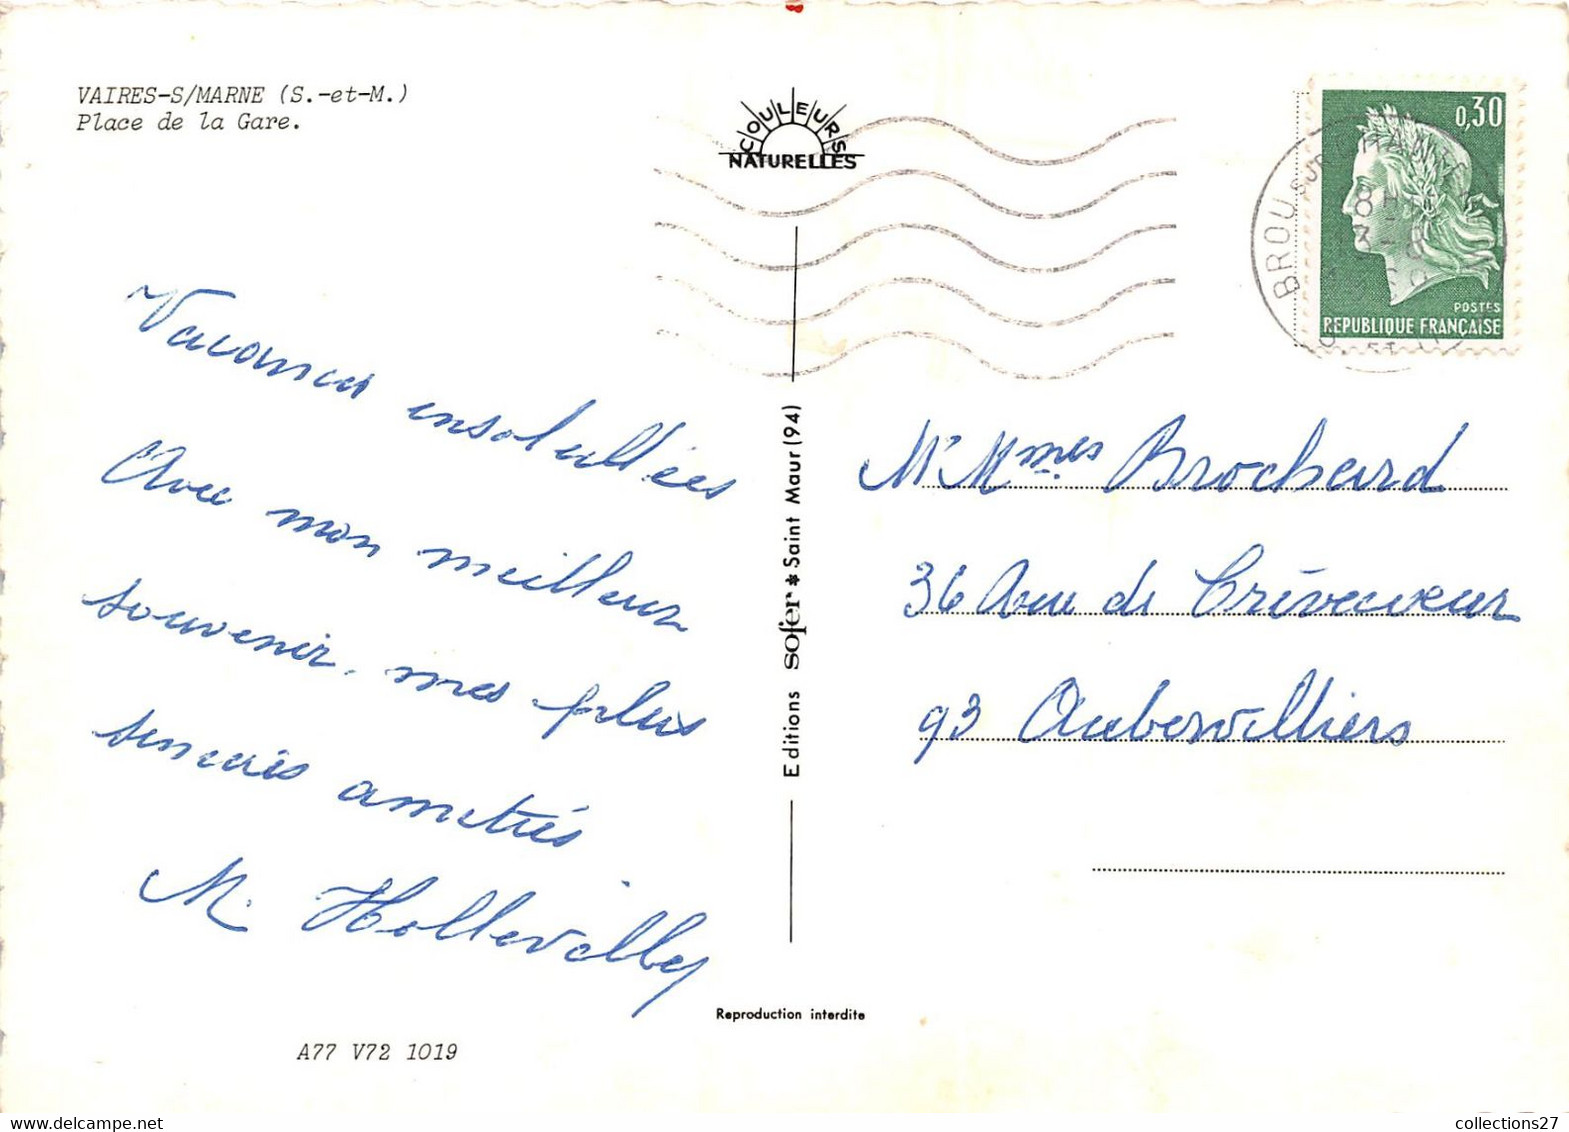 VAIRES-S/MARNE (S.-et-M.)
Place de la Gare.
COULEURS
NATURELLES
0,30
POSTES
REPUBLIQUE FRANÇAISE
BROU SUR CHANT
8H
13-8
Vacances ensoleillées
Avec mon meilleur
souvenir. mes plus
sincères amitiés
M. Hollevilley
Editions sofer * Saint Maur (94)
Mr Mmes Brochard
36 Ave de Crèvecoeur
93 Aubervilliers
Reproduction interdite
A77 V72 1019
collections27